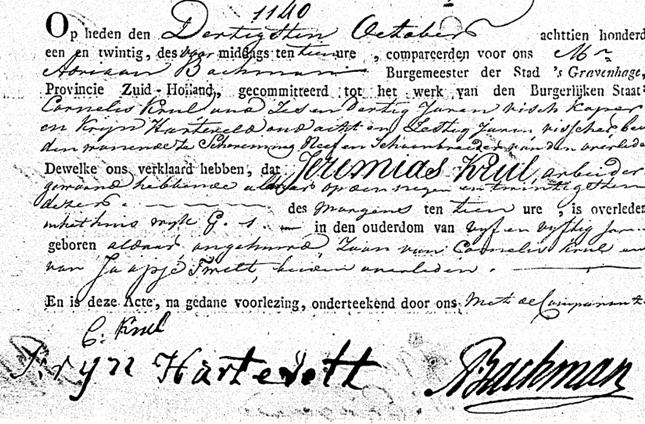 1140
Op heden den Dertigsten October achttien honderd
een en twintig, des voor middags ten tien ure, compareerden voor ons Mr
Adriaan Bachman Burgemeester der Stad 's Gravenhage,
Provincie Zuid-Holland, gecommitteerd tot het werk van den Burgerlijken Staat
Cornelis Krul oud Zes en Dertig Jaren visch koper
en Kryn Harteveld oud acht en Zestig Jaren visscher, bei
den wonende te Scheveningen Neef en van den overlede
Dewelke ons verklaard hebben, dat Jeremias Krul, arbeider
gewoond hebbende aldaar op den negen en twintigsten
dezer des morgens ten tien ure, is overleden
in het huis wyk G. in den ouderdom van vyf en vyftig jaren
geboren aldaar ongehuwd Zoon van Cornelis Krul en
van Jaapje beiden overleden.
En is deze Acte, na gedane voorlezing, onderteekend door ons met de Comparanten
C. Krul
Kryn Hartevelt
ABachman